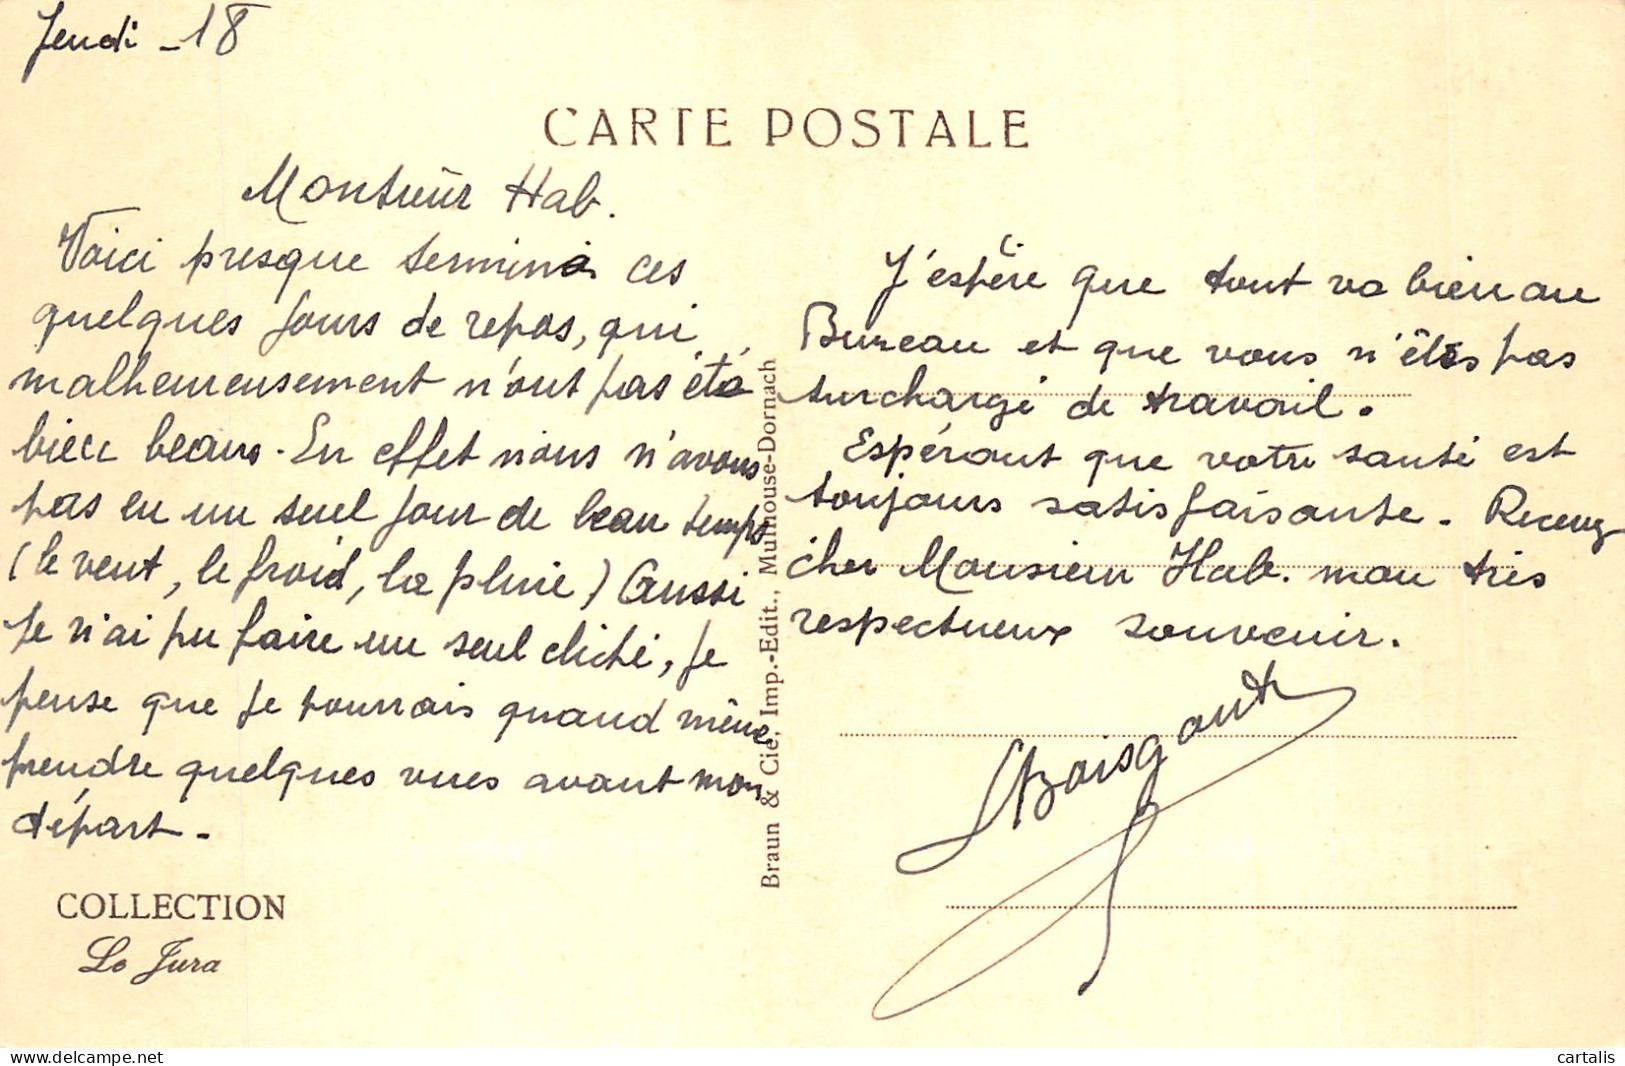 Jeudi - 18
CARTE POSTALE
Monsieur Hab.
Voici presque terminé ces
quelques jours de repos, qui
malheureusement n'ont pas été
bien beaux. En effet nous n'avons
pas eu un seul jour de beau temps
(le vent, le froid, la pluie) Aussi
je n'ai pu faire un seul cliché, je
pense que je pourrais quand même
prendre quelques vues avant mon
départ -
J'espère que tout va bien au
Bureau et que vous n'êtes pas
surchargé de travail.
Espérant que votre santé est
toujours satisfaisante. Recevez
cher Monsieur Hab. mon très
respectueux souvenir.
Boisgontr
Braun & Cie, Imp.-Edit., Mulhouse-Dornach
COLLECTION
Le Jura
delcampe.net
cartalis